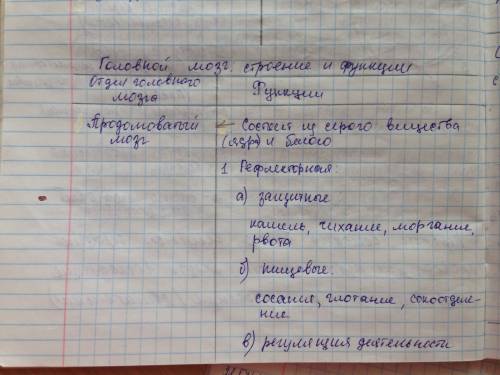 Головной мозг. строение и функции
Отдел головного мозга
Функции
Продомоватый мозг
– Состоит из серого вещества
(ядра) и белого
1 Рефлекторная:
а) защитные
кашель, чихание, моргание,
рвота
б) пищевые:
сосания, глотание, сокоотделе-
ние
в) регуляция деятельности